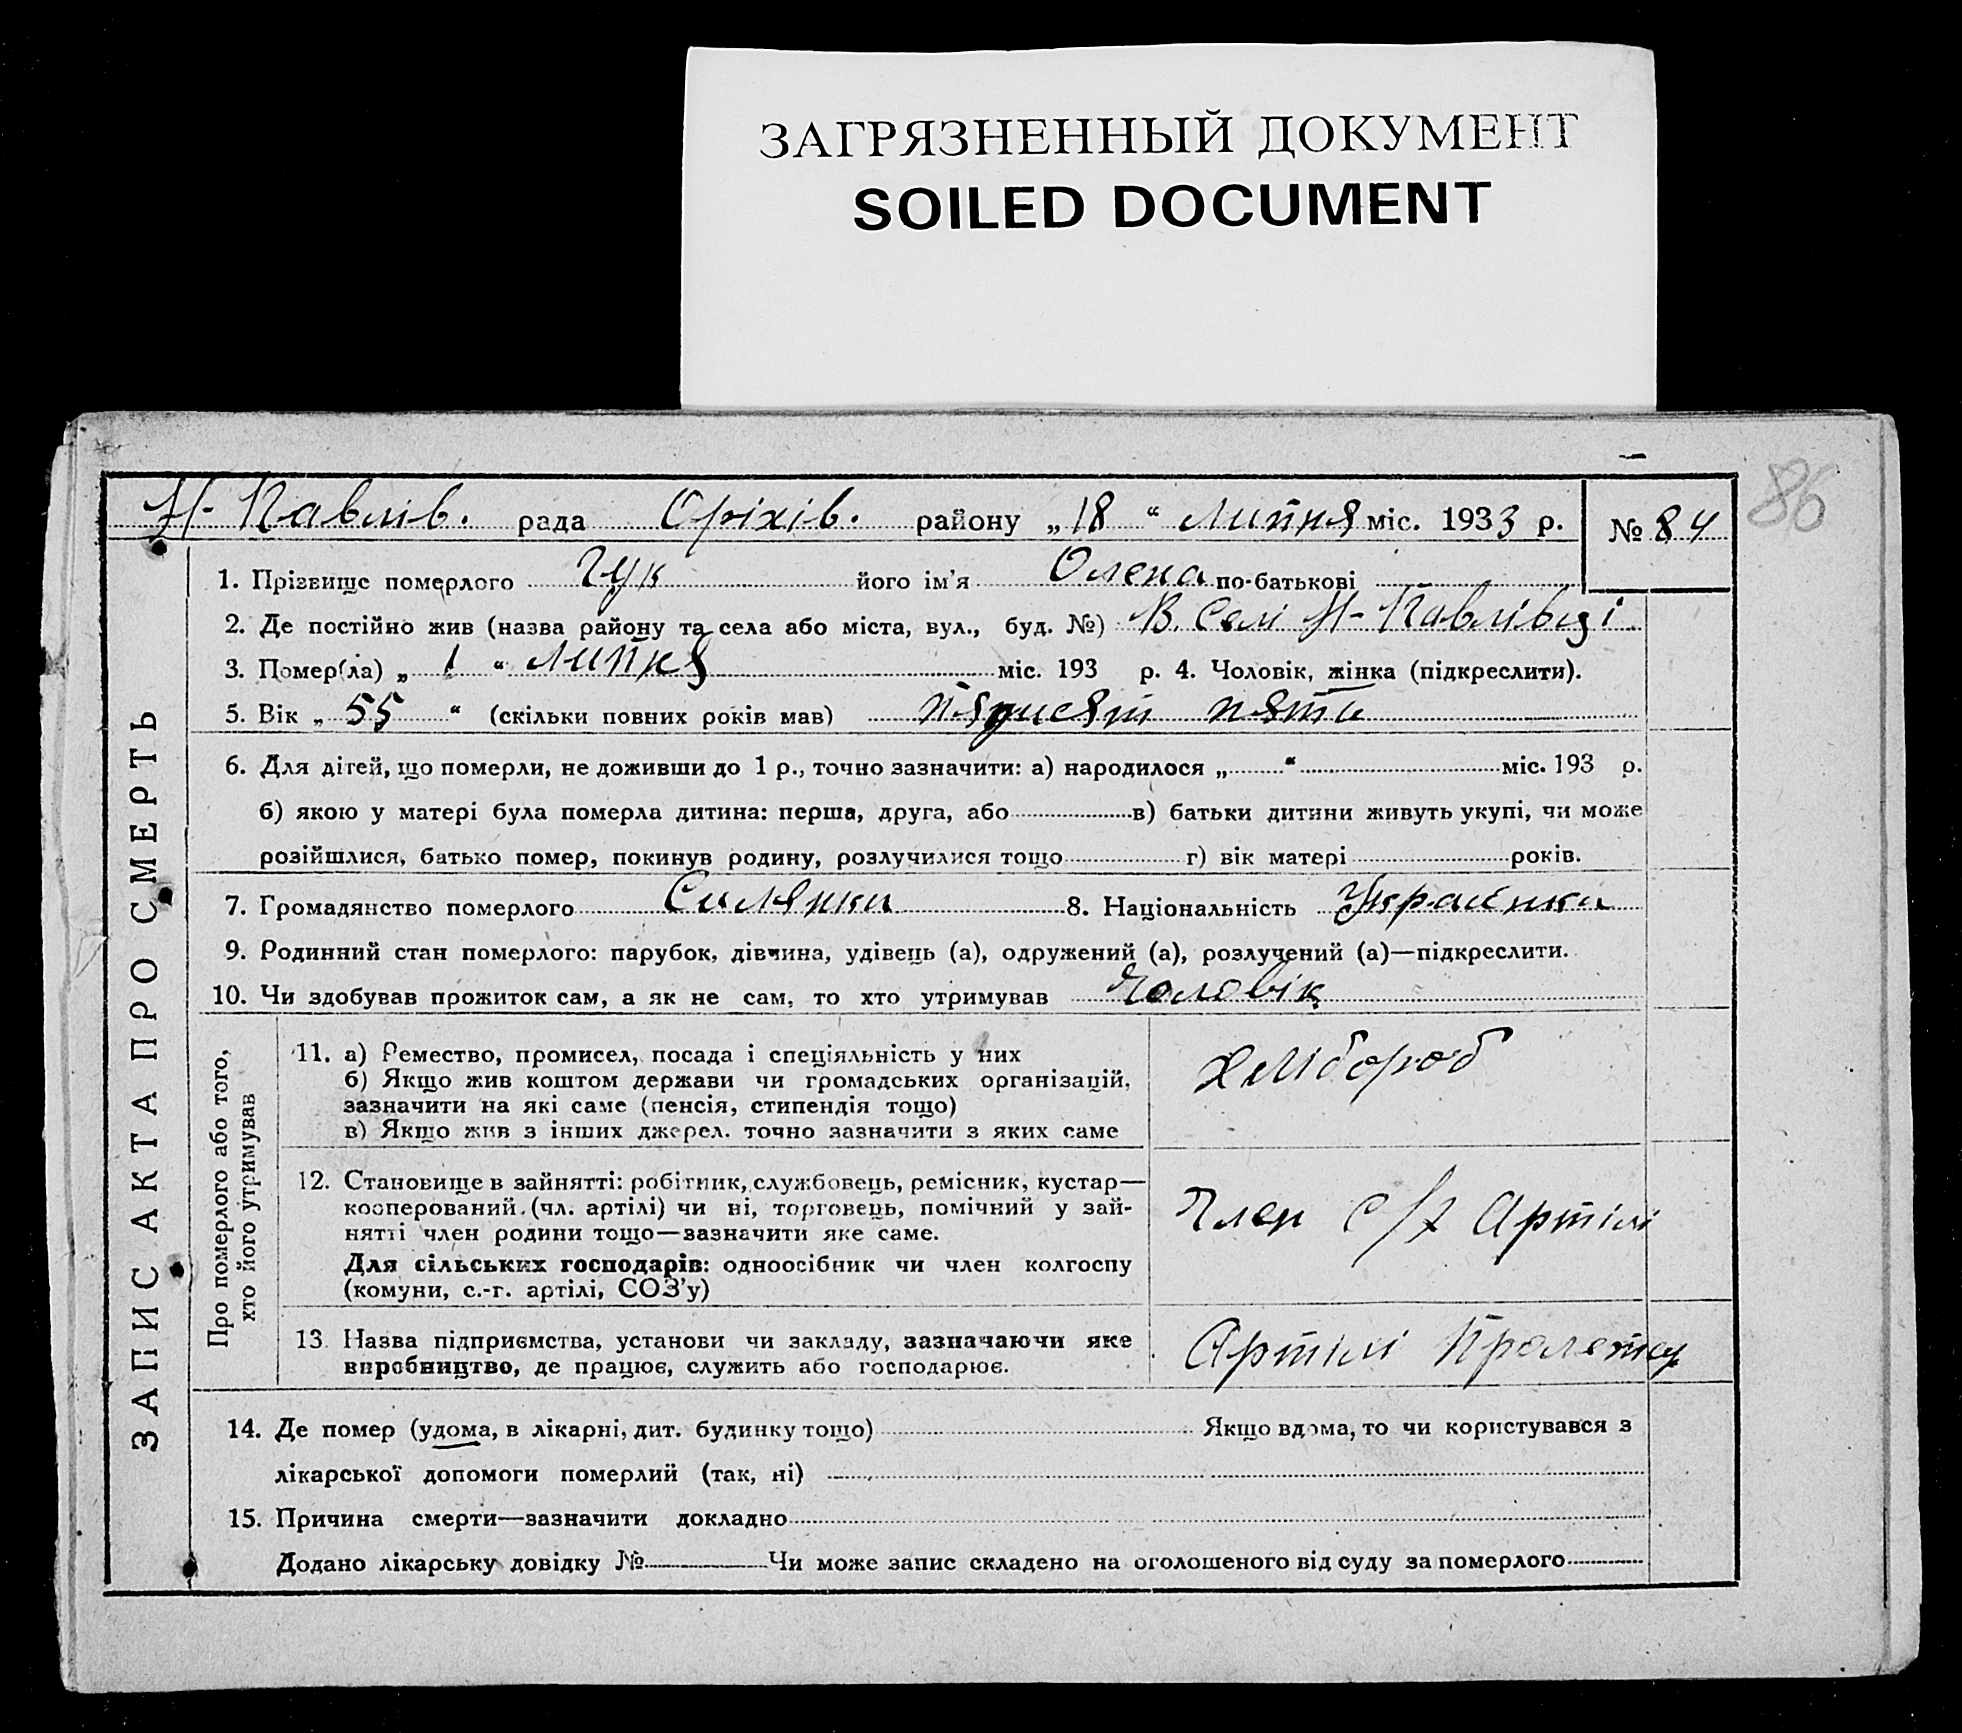 ЗАГРЯЗНЕННЫЙ ДОКУМЕНТ
SOILED DOCUMENT
86
Н-Павлів. рада Оріхів. району „18“ Липня міс. 1933 р. № 84
ЗАПИС АКТА ПРО СМЕРТЬ
1. Прізвище померлого Гук його ім'я Олена по-батькові
2. Де постійно жив (назва району та села або міста, вул., буд. №) В. Селі Н-Павлівці
3. Помер(ла) „ 1 “ Липня міс. 193 р. 4. Чоловік, жінка (підкреслити).
5. Вік „ 55 “ (скільки повних років мав) пядисят пяти
6. Для дітей, що померли, не доживши до 1 р., точно зазначити: а) народилося „ “ міс. 193 р.
б) якою у матері була померла дитина: перша, друга, або в) батьки дитини живуть укупі, чи може
розійшлися, батько помер, покинув родину, розлучилися тощо г) вік матері років.
7. Громадянство померлого Силянки 8. Національність Українка
9. Родинний стан померлого: парубок, дівчина, удівець (а), одружений (а), розлучений (а)—підкреслити.
10. Чи здобував прожиток сам, а як не сам, то хто утримував Чоловік
Про померлого або того,
хто його утримував
11. а) Ремество, промисел, посада і спеціяльність у них
б) Якщо жив коштом держави чи громадських організацій,
зазначити на які саме (пенсія, стипендія тощо)
в) Якщо жив з інших джерел. точно зазначити з яких саме
Хлібороб
12. Становище в зайнятті: робітник, службовець, ремісник, кустар—
кооперований (чл. артілі) чи ні, торговець, помічний у зай-
нятті член родини тощо—зазначити яке саме.
Для сільських господарів: одноосібник чи член колгоспу
(комуни, с.-г. артілі, СОЗ'у)
Член С/х Артілі
13. Назва підприємства, установи чи закладу, зазначаючи яке
виробництво, де працює, служить або господарює.
Артілі Пролетар
14. Де помер (удома, в лікарні, дит. будинку тощо) Якщо вдома, то чи користувався з
лікарської допомоги померлий (так, ні)
15. Причина смерти—зазначити докладно
Додано лікарську довідку № Чи може запис складено на оголошеного від суду за померлого